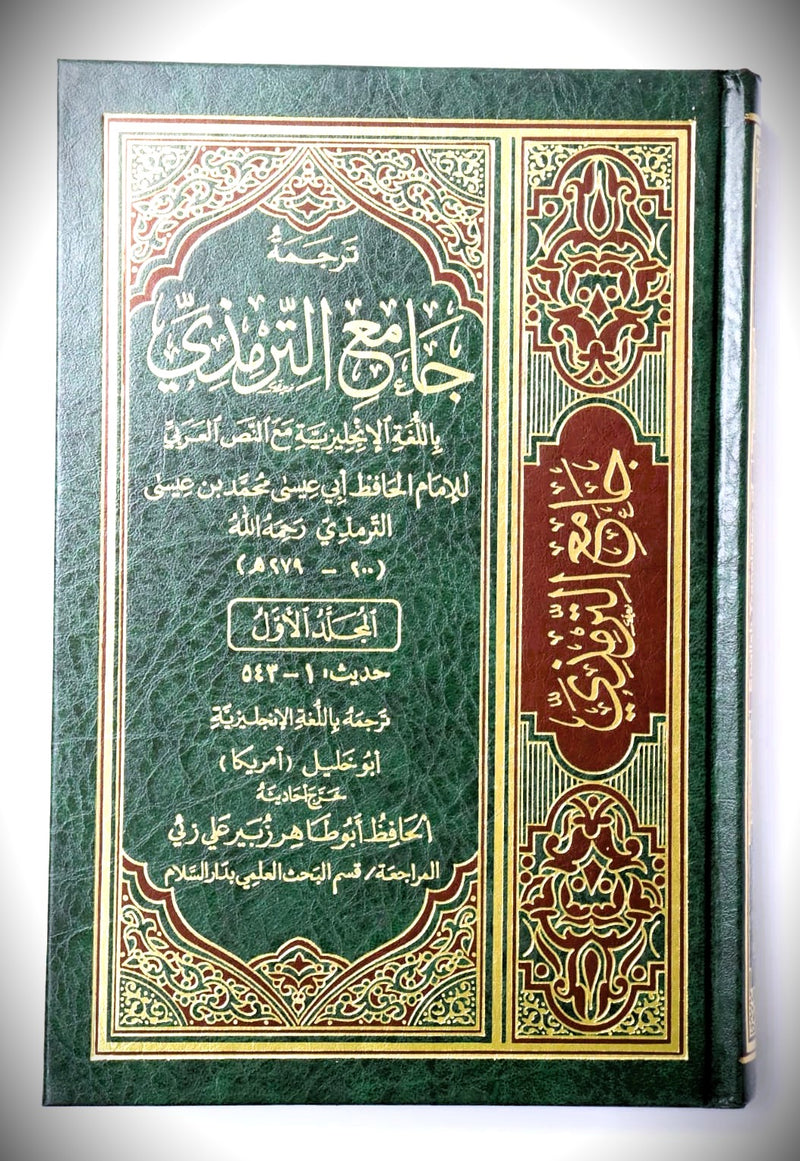 تَرجَمَةُ
جَامِعِ التِّرْمِذِيِّ
بِاللُّغَةِ الإِنْجِلِيزِيَّةِ مَعَ النَّصِّ العَرَبِيِّ
لِلإِمَامِ الحَافِظ أَبِي عِيسَى مُحَمَّد بن عِيسَى
التِّرمذِي رَحِمَهُ اللهُ
(٢٠٠ – ٢٧٩هـ)
المُجَلَّدُ الأَوَّلُ
حديث: ١ – ٥٤٣
تَرجَمَهُ بِاللُّغَةِ الإنجليزِيَّةِ
أبُو خَلِيل (أمريكا)
خَرَّجَ أَحَادِيثَهُ
الحَافِظُ أَبُو طَاهِر زُبَير عَلي زئي
المراجعة/ قسم البحث العلمي بدار السَّلام
جَامِعِ التِّرْمِذِيِّ